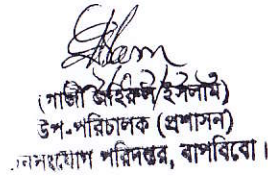 (গাজী জহিরুল ইসলাম)
উপ-পরিচালক (প্রশাসন)
জনসংযোগ পরিদপ্তর, বাপবিবো।